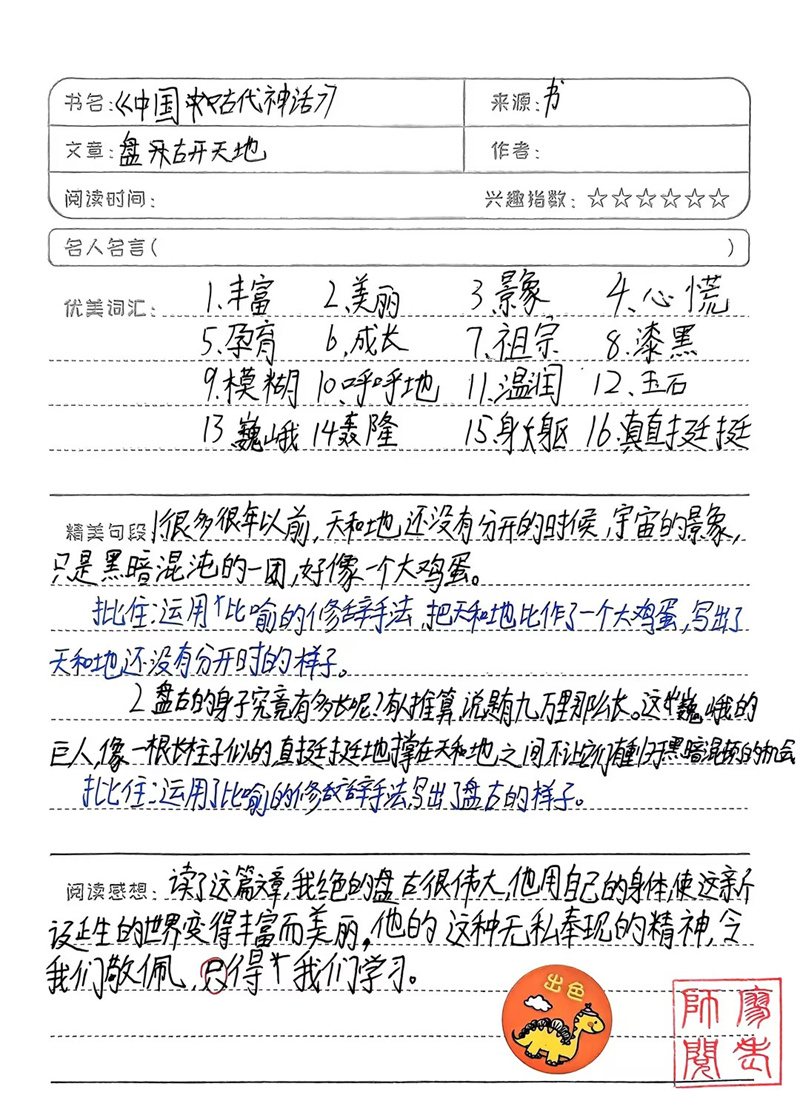 书名:《中国古代神话》 来源:书
文章:盘古开天地 作者:
阅读时间: 兴趣指数:☆☆☆☆☆☆
名人名言( )
优美词汇: 1.丰富 2.美丽 3.景象 4.心慌
5.孕育 6.成长 7.祖宗 8.漆黑
9.模糊 10.呼呼地 11.温润 12.玉石
13.巍峨 14轰隆 15.身躯 16.直挺挺
精美句段 1很多很年以前,天和地还没有分开的时候,宇宙的景象,
只是黑暗混沌的一团,好像一个大鸡蛋。
批住:运用比喻的修辞手法,把天和地比作了一个大鸡蛋,写出了
天和地还没有分开时的样子。
2 盘古的身子究竟有多长呢?有人推算,说是有九万里那么长。这巍峨的
巨人,像一根长柱子似的,直挺挺地撑在天和地之间不让它们有重归于黑暗混沌的机会
批住:运用了比喻的修辞手法,写出了盘古的样子。
阅读感想: 读了这篇文章,我觉的盘古很伟大,他用自己的身体,使这新
诞生的世界变得丰富而美丽,他的这种无私奉现的精神,令
我们敬佩,只得我们学习。
出色
师阅